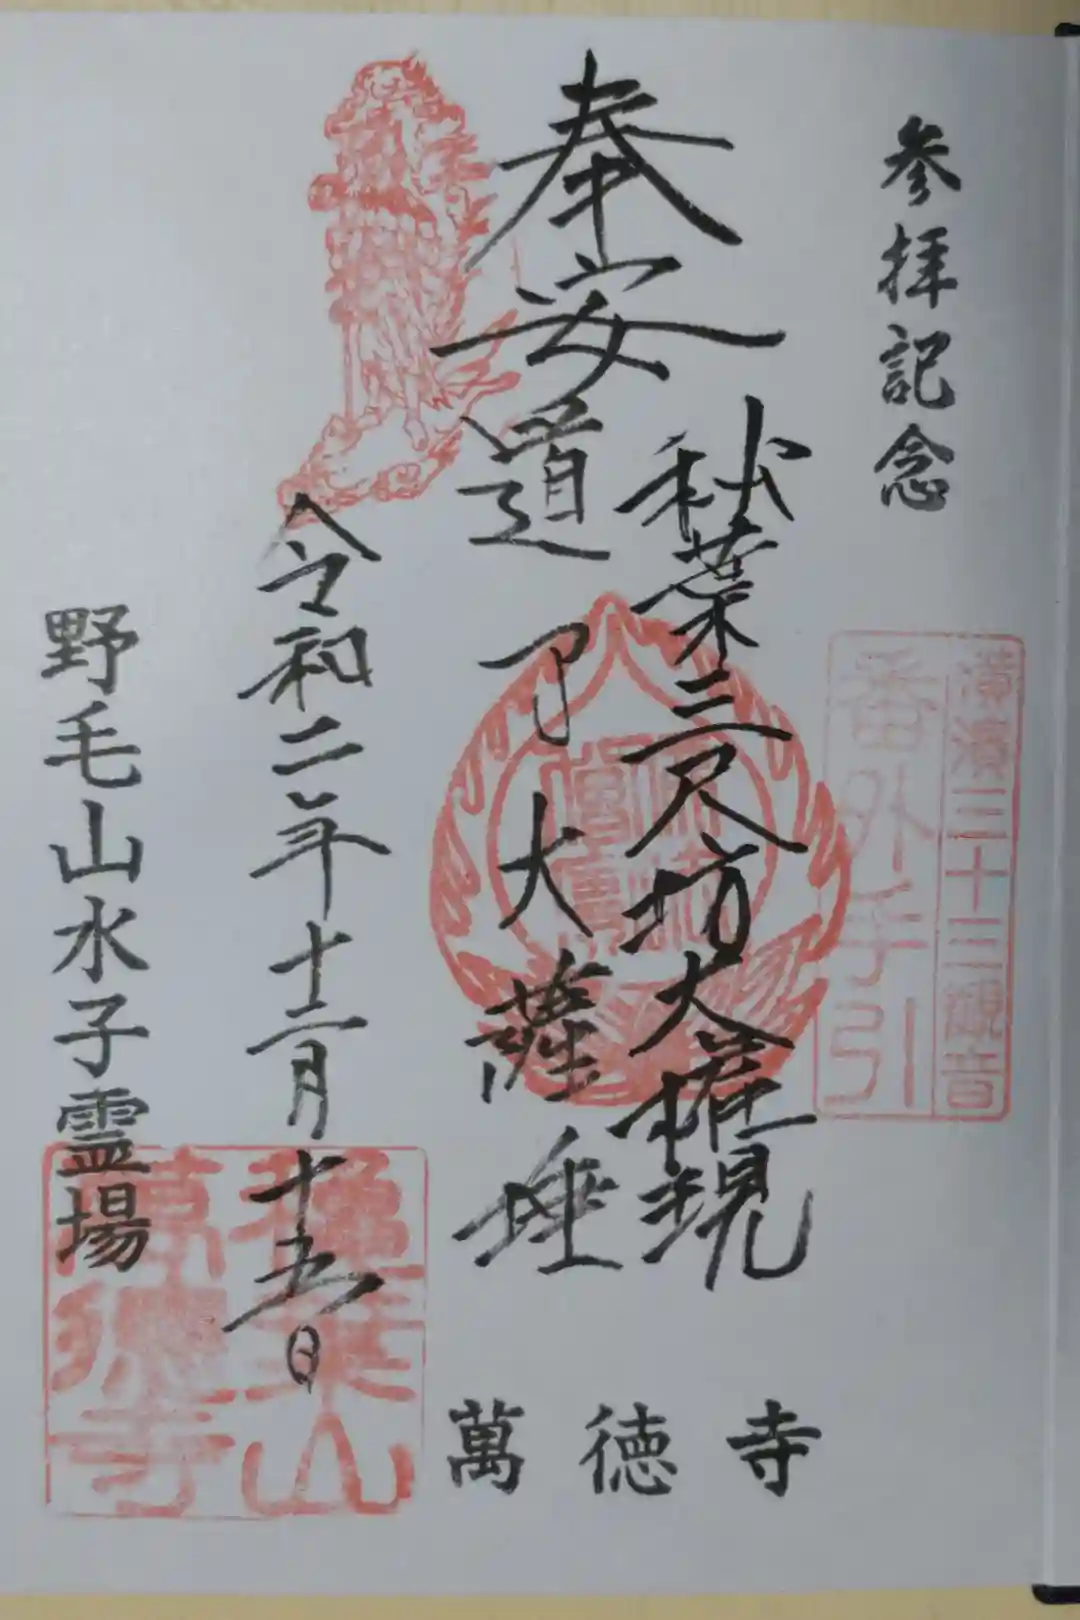 参拝記念
横濱三十三観音
番外手引
秋葉三尺坊大権現
奉安
道了大薩埵
令和二年十二月十五日
野毛山水子霊場
萬徳寺
秋葉山
萬徳寺